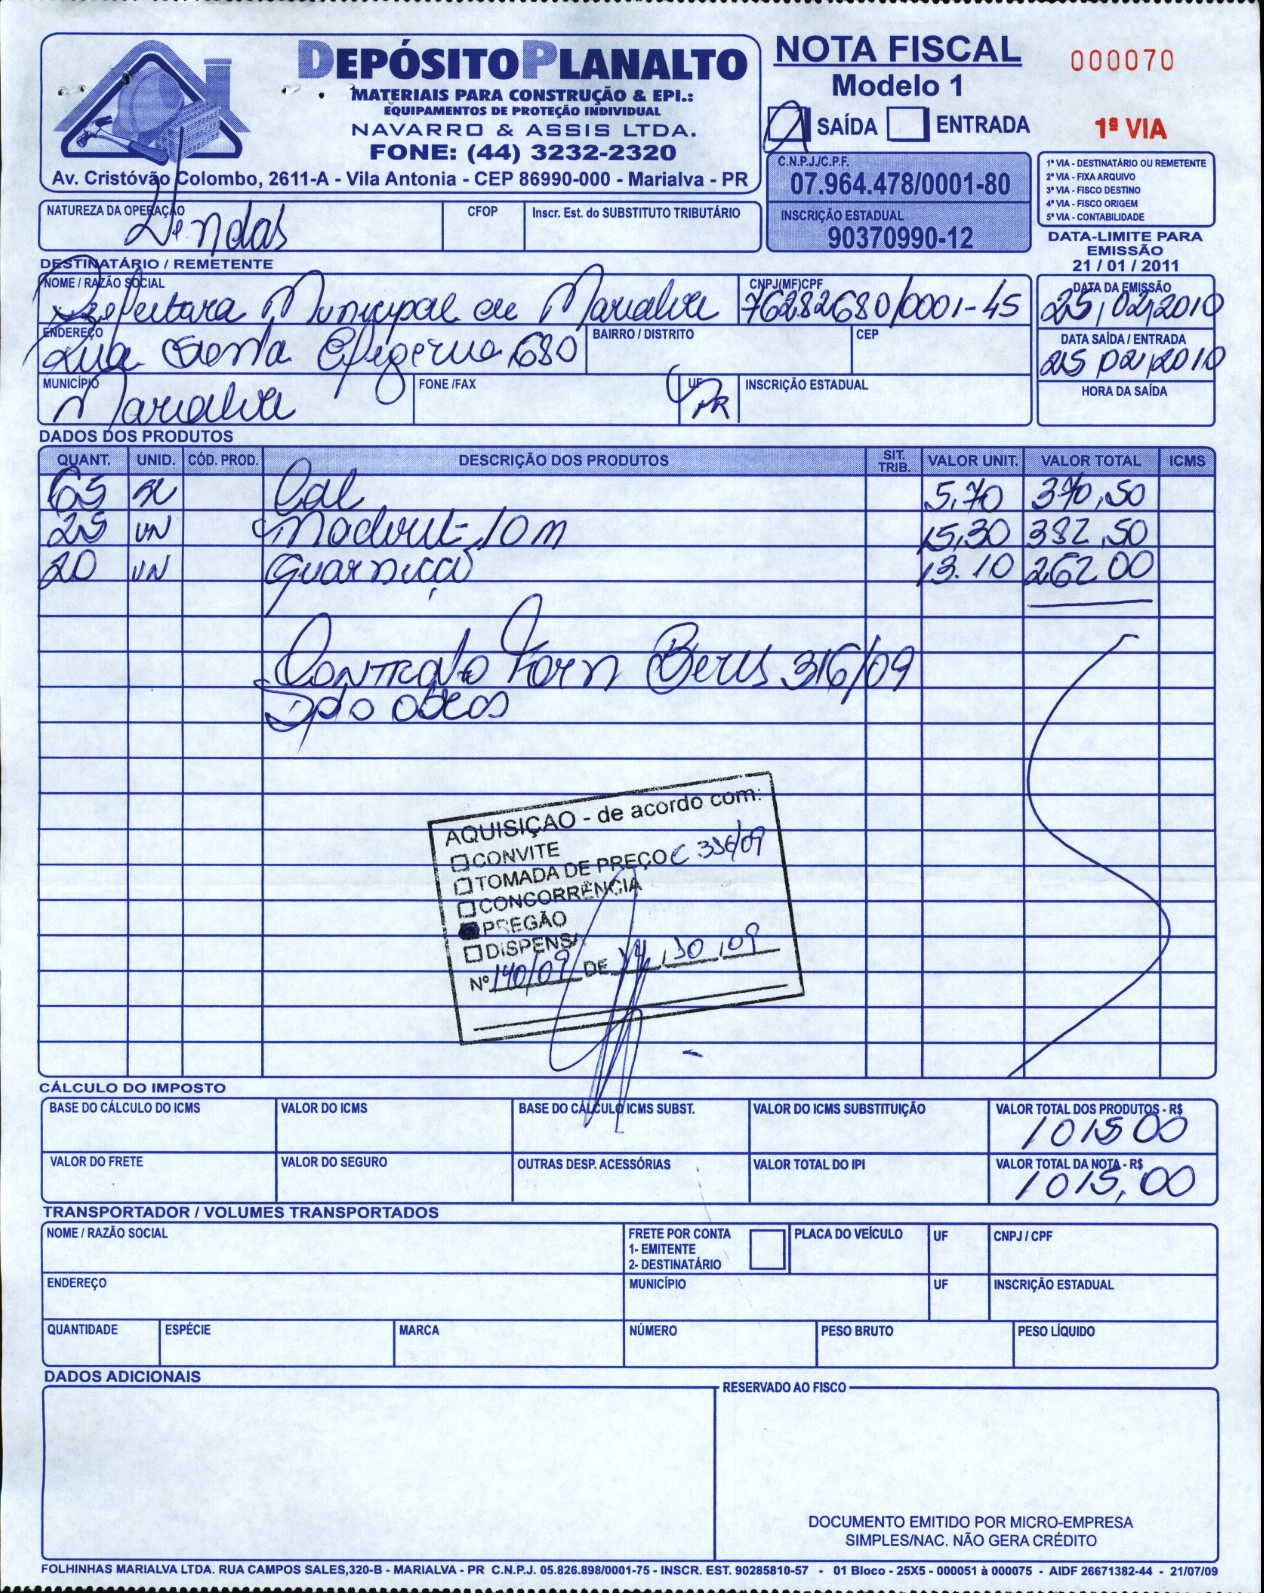 DEPÓSITO PLANALTO
MATERIAIS PARA CONSTRUÇÃO & EPI.:
EQUIPAMENTOS DE PROTEÇÃO INDIVIDUAL
NAVARRO & ASSIS LTDA.
FONE: (44) 3232-2320
Av. Cristóvão Colombo, 2611-A - Vila Antonia - CEP 86990-000 - Marialva - PR
NOTA FISCAL
Modelo 1
SAÍDA ENTRADA
000070
1ª VIA
C.N.P.J./C.P.F.
07.964.478/0001-80
INSCRIÇÃO ESTADUAL
90370990-12
1ª VIA - DESTINATÁRIO OU REMETENTE
2ª VIA - FIXA ARQUIVO
3ª VIA - FISCO DESTINO
4ª VIA - FISCO ORIGEM
5ª VIA - CONTABILIDADE
DATA-LIMITE PARA
EMISSÃO
21 / 01 / 2011
NATUREZA DA OPERAÇÃO CFOP Inscr. Est. do SUBSTITUTO TRIBUTÁRIO
Vendas
DESTINATÁRIO / REMETENTE
NOME / RAZÃO SOCIAL CNPJ(MF)CPF DATA DA EMISSÃO
Prefeitura Municipal de Marialva 76282680/0001-45 25/02/2010
ENDEREÇO BAIRRO / DISTRITO CEP DATA SAÍDA / ENTRADA
Rua Santa Efigenia 680 25 02/2010
MUNICÍPIO FONE /FAX UF INSCRIÇÃO ESTADUAL HORA DA SAÍDA
Marialva PR
DADOS DOS PRODUTOS
QUANT. UNID. CÓD. PROD. DESCRIÇÃO DOS PRODUTOS SIT. TRIB. VALOR UNIT. VALOR TOTAL ICMS
65 SC Cal 5,70 370,50
25 UN 10m 15,30 382,50
20 UN Guarnição 13.10 262 00
Contrato Forn Bens 316/09
Dpto obras
AQUISIÇÃO - de acordo com:
CONVITE
TOMADA DE PREÇO C 316/09
CONCORRÊNCIA
PREGÃO
DISPENSA
Nº 140/09 DE 14 / 10 / 09
CÁLCULO DO IMPOSTO
BASE DO CÁLCULO DO ICMS VALOR DO ICMS BASE DO CÁLCULO ICMS SUBST. VALOR DO ICMS SUBSTITUIÇÃO VALOR TOTAL DOS PRODUTOS - R$
1015 00
VALOR DO FRETE VALOR DO SEGURO OUTRAS DESP. ACESSÓRIAS VALOR TOTAL DO IPI VALOR TOTAL DA NOTA - R$
1015,00
TRANSPORTADOR / VOLUMES TRANSPORTADOS
NOME / RAZÃO SOCIAL FRETE POR CONTA PLACA DO VEÍCULO UF CNPJ / CPF
1- EMITENTE
2- DESTINATÁRIO
ENDEREÇO MUNICÍPIO UF INSCRIÇÃO ESTADUAL
QUANTIDADE ESPÉCIE MARCA NÚMERO PESO BRUTO PESO LÍQUIDO
DADOS ADICIONAIS
RESERVADO AO FISCO
DOCUMENTO EMITIDO POR MICRO-EMPRESA
SIMPLES/NAC. NÃO GERA CRÉDITO
FOLHINHAS MARIALVA LTDA. RUA CAMPOS SALES,320-B - MARIALVA - PR C.N.P.J. 05.826.898/0001-75 - INSCR. EST. 90285810-57 - 01 Bloco - 25X5 - 000051 à 000075 - AIDF 26671382-44 - 21/07/09